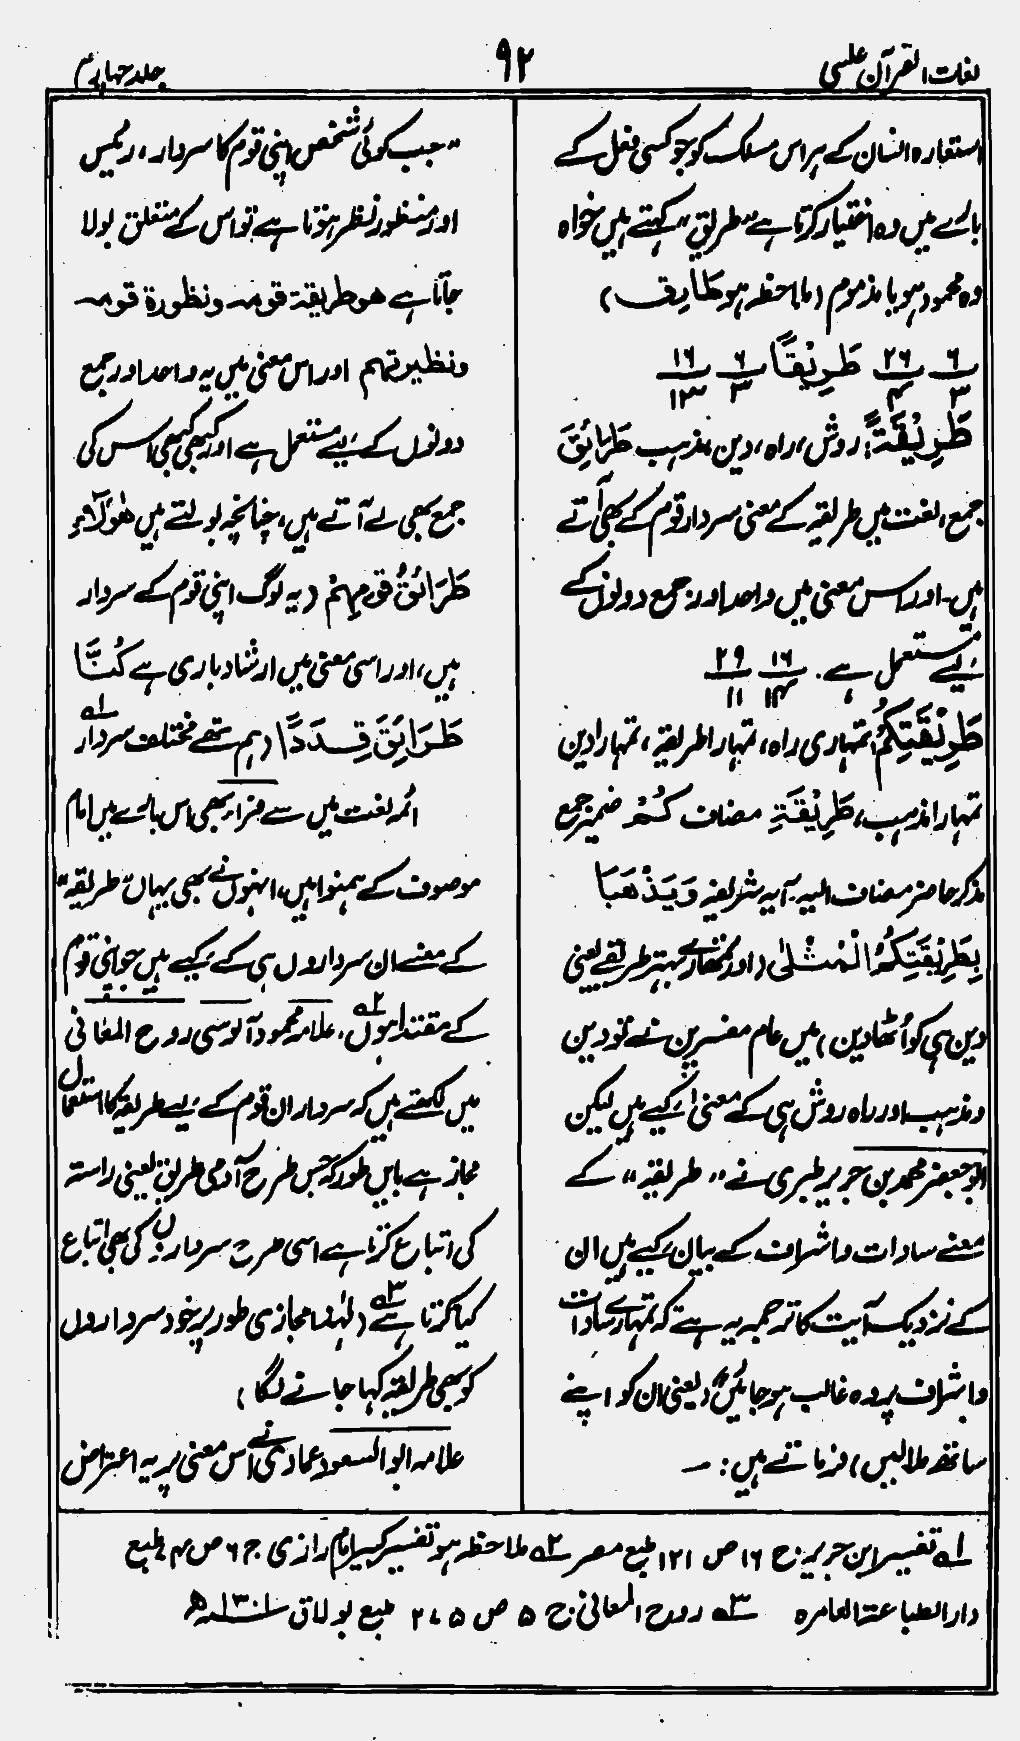 لغات القرآن عکسی
۹۲
جلد چہارم
استعارہ انسان کے ہر اس مسلک کو جو کسی فعل کے
بارے میں وہ اختیار کرتا ہے "طریق" کہتے ہیں خواہ
وہ محمود ہو یا مذموم (ملاحظہ ہو طَارِق)
۶/۳ ۲۶/۴ طَرِیْقًا ۶/۳ ۱۶/۱۳
طَرِیْقَۃً: روش، راہ، دین، مذہب طَرَائِقَ
جمع، لغت میں طریقہ کے معنی سردار قوم کے بھی آتے
ہیں۔ اور اس معنی میں واحد اور جمع دونوں کے
لیے مستعمل ہے۔ ۱۶/۱۴ ۲۹/۱۱
طَرِیْقَتِکُمُ: تمہاری راہ، تمہارا طریقہ، تمہارا دین
تمہارا مذہب، طَرِیْقَۃِ مضاف کُمْ ضمیر جمع
مذکر حاضر مضاف الیہ۔ آیہ شریفہ وَیَذْھَبَا
بِطَرِیْقَتِکُمُ الْمُثْلٰی (اور تمھارے بہتر طریقے یعنی
دین ہی کو اُٹھا دیں) میں عام مفسرین نے تو دین
و مذہب اور راہ روش ہی کے معنی لیے ہیں لیکن
ابو جعفر محمد بن جریر طبری نے "طریقہ" کے
معنے سادات و اشراف کے بیان کیے ہیں ان
کے نزدیک آیت کا ترجمہ یہ ہے کہ تمہارے سادات
و اشراف پر وہ غالب ہو جائیں" (یعنی ان کو اپنے
ساتھ ملا لیں) فرماتے ہیں:۔
"جب کوئی شخص اپنی قوم کا سردار، رئیس
اور منظور نظر ہوتا ہے تو اس کے متعلق بولا
جاتا ہے ھو طریقۃ قومہ ونظورۃ قومہ
ونظیرتہم اور اس معنی میں یہ واحد اور جمع
دونوں کے لیے مستعمل ہے اور کبھی کبھی اس کی
جمع بھی لے آتے ہیں، چنانچہ بولتے ہیں ھٰؤلَاءِ
طَرَائِقُ قومِہِمْ (یہ لوگ اپنی قوم کے سردار
ہیں، اور اسی معنی میں ارشاد باری ہے کُنَّا
طَرَائِقَ قِدَدًا (ہم تھے مختلف سردار لہ۱
ائمہ لغت میں سے فراء بھی اس بارے میں امام
موصوف کے ہمنوا ہیں، انہوں نے بھی یہاں "طریقہ"
کے معنے ان سرداروں ہی کے لیے ہیں جو اپنی قوم
کے مقتدا ہوں ۲ہ، علامہ محمود آلوسی روح المعانی
میں لکھتے ہیں کہ سرداران قوم کے لیے طریقہ کا استعمال
مجاز ہے بایں طور کہ جس طرح آدمی طریق یعنی راستہ
کی اتباع کرتا ہے اسی طرح سرداروں کی بھی اتباع
کیا کرتا ہے ۳ہ (لہٰذا مجازی طور پر خود سرداروں
کو بھی طریقہ کہا جانے لگا)
علامہ ابو السعود عمادی نے اس معنی پر یہ اعتراض
۱ہ تفسیر ابن جریر: ج ۱۶ ص ۱۲۱ طبع مصر ۲ہ ملاحظہ ہو تفسیر کبیر امام رازی ج ۶ ص ۴۷ طبع
دار الطباعۃ العامرہ ۳ہ روح المعانی ج ۵ ص ۲۷۵ طبع بولاق ۱۳۰۱ھ